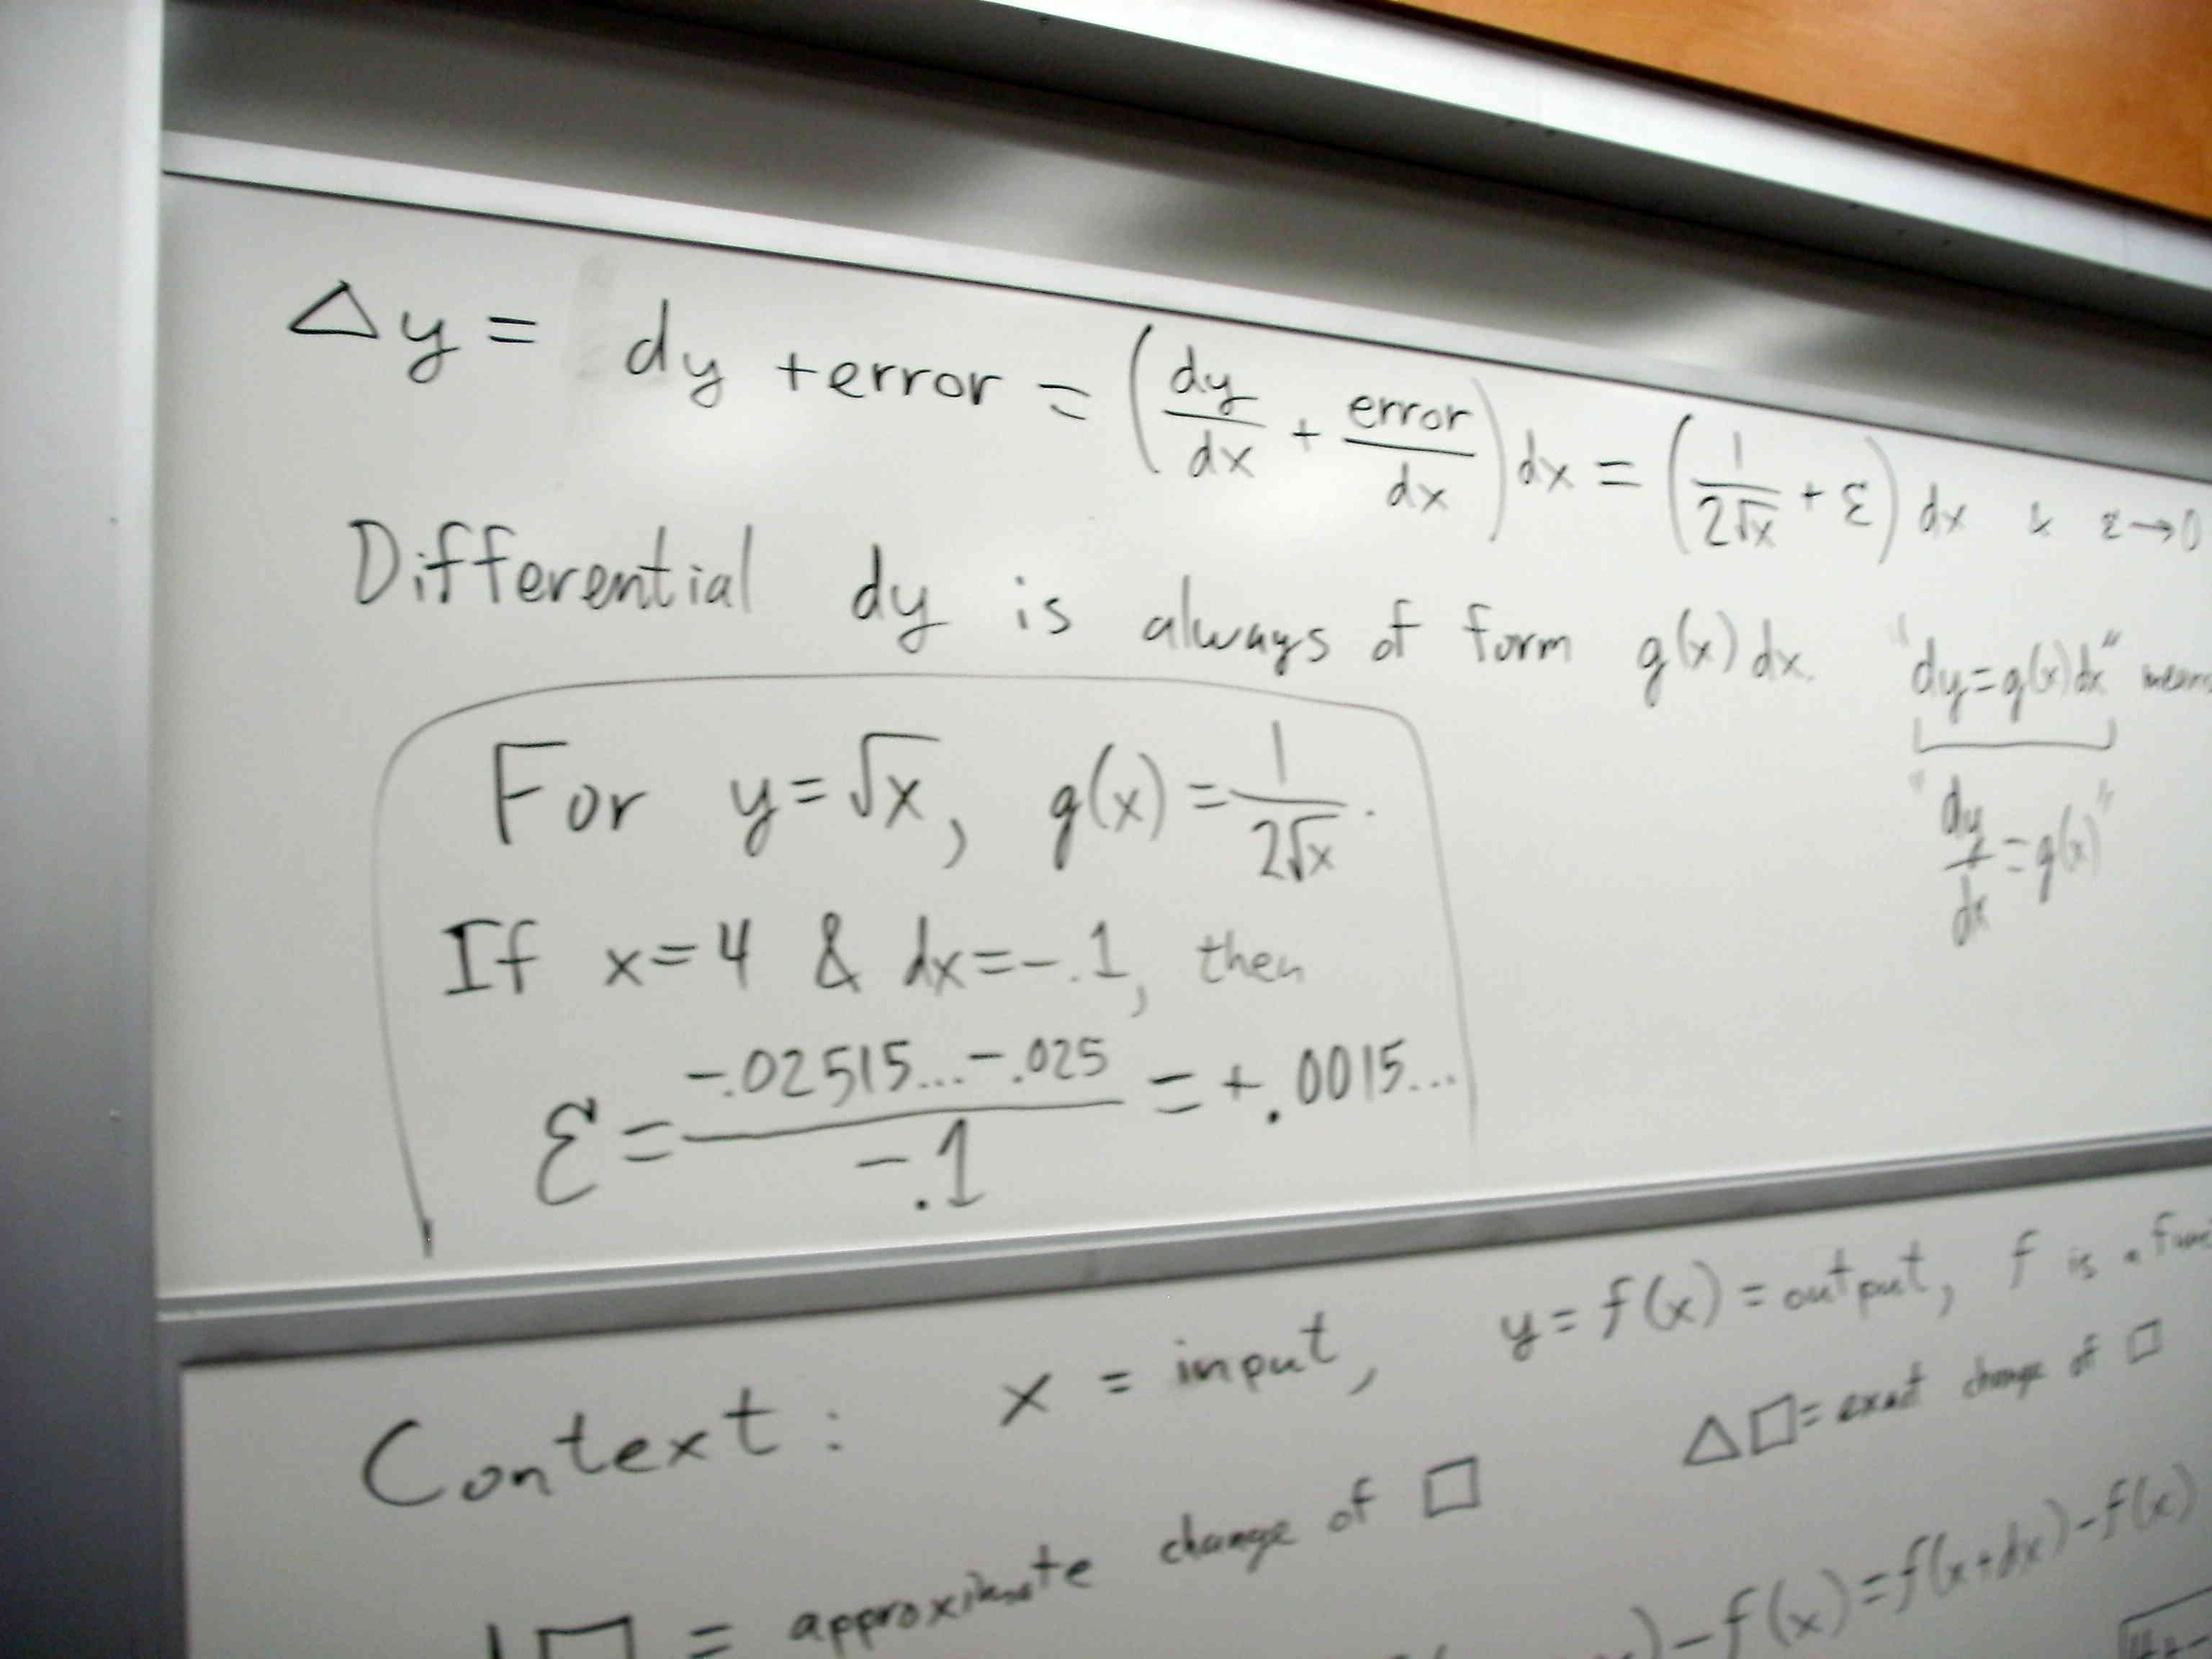 Δy = dy + error = (dy/dx + error/dx) dx = (1/(2√x) + ε) dx & ε→0
Differential dy is always of form g(x) dx. "dy=g(x)dx" means
"dy/dx = g(x)"
For y=√x, g(x) = 1/(2√x).
If x=4 & dx=-.1, then
ε = (-.02515...-.025)/(-.1) = +.0015...
Context: x = input, y = f(x) = output, f is a
Δ□ = exact change of □
□ = approximate change of □
) - f(x) = f(x+dx) - f(x)